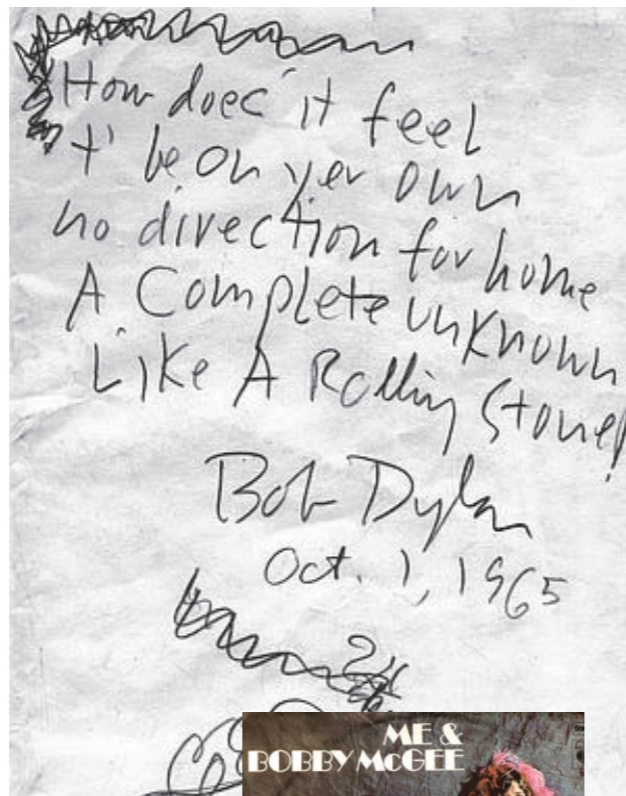 How does it feel
t' be on yer own
no direction for home
A Complete unknown
Like A Rolling Stone!
Bob Dylan
Oct. 1, 1965
ME &
BOBBY McGEE